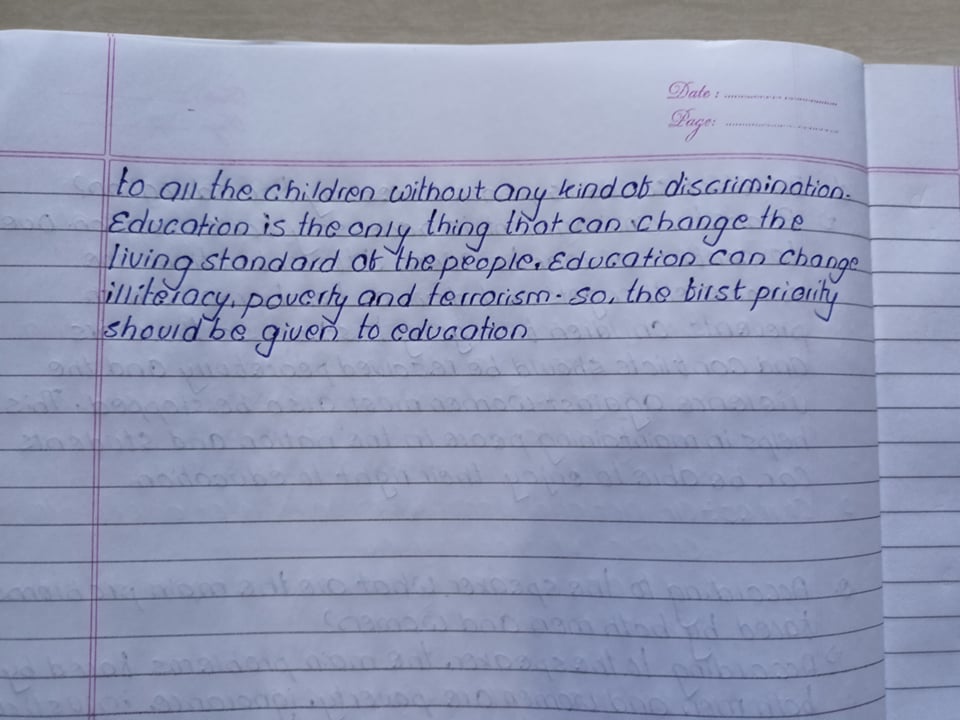 Date :
Page:
to all the children without any kind of discrimination.
Education is the only thing that can change the
living standard of the people. Education can change
illiteracy, poverty and terrorism. so, the first priority
should be given to education